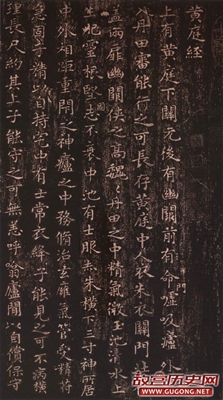 黄庭經
上有黄庭下關元後有幽闕前有命嘘吸廬外
入丹田審能行之可長存黄庭中人衣朱衣關門壯
蓋兩扉幽闕俠之高巍巍丹田之中精氣微玉池清水上
生肥靈根堅志不衰中池有士服赤朱橫下三寸神所居
中外相距重閉之神廬之中務脩治玄廱氣管受精符
急固子精以自持宅中有士常衣絳子能見之可不病橫
理長尺約其上子能守之可無恙呼噏廬間以自償保守
故宫历史网